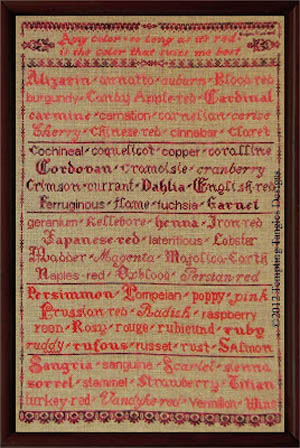 Any color - so long as it's red
is the color that suits me best
Alizarin - annatto - auburn - Blood-red
burgundy - Candy Apple-red - Cardinal
carmine - carnation - carnelian - cerise
Cherry - Chinese-red - cinnebar - Claret
Cochineal - coquelicot - copper - coralline
Cordovan - cramoisie - cranberry
Crimson - currant - Dahlia - English-red
Ferruginous - flame - fuchsia - Garnet
geranium - Hellebore - henna - Iron-red
Japanese-red - lateritious - Lobster
Madder - Magenta - Majolica-Earth
Naples-red - Oxblood - Persian-red
Persimmon - Pompeian - poppy - pink
Prussian-red - Radish - raspberry
roan - Rosy - rouge - rubicund - ruby
ruddy - rufous - russet - rust - Salmon
Sangria - sanguine - Scarlet - sienna
sorrel - stammel - Strawberry - Titian
turkey-red - Vandyke-red - Vermilion - Wine
©2012 Tempting Tangles Designs